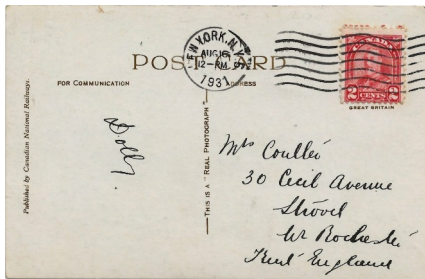 NEW YORK, N.Y.
AUG
12-PM
1931
CANADA
2 CENTS 2
POST CARD
FOR COMMUNICATION
ADDRESS
GREAT BRITAIN
Published by Canadian National Railways.
THIS IS A "REAL PHOTOGRAPH"
Dolly.
Mrs
30 Cecil Avenue
Strood
Nr Rochester
Kent England